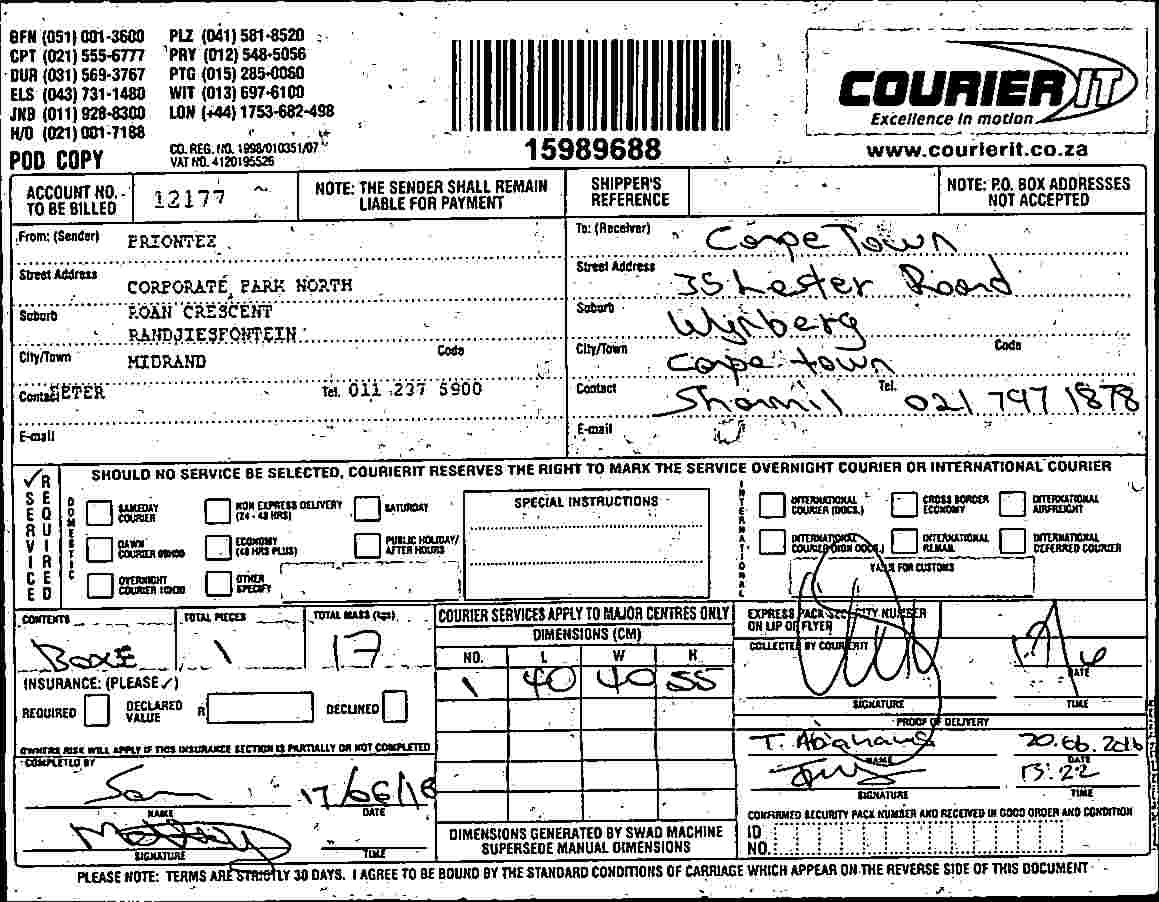 BFN (051) 001-3600 PLZ (041) 581-8520
CPT (021) 555-6777 PRY (012) 548-5056
DUR (031) 569-3767 PTG (015) 285-0060
ELS (043) 731-1480 WIT (013) 697-6100
JNB (011) 928-8300 LON (+44) 1753-682-498
H/O (021) 001-7188
POD COPY
CO. REG. NO. 1998/010351/07
VAT NO. 4120195526
15989688
COURIER IT
Excellence in motion
www.courierit.co.za
ACCOUNT NO. TO BE BILLED 12177
NOTE: THE SENDER SHALL REMAIN LIABLE FOR PAYMENT
SHIPPER'S REFERENCE
NOTE: P.O. BOX ADDRESSES NOT ACCEPTED
From: (Sender) PRIONTEX
Street Address CORPORATE PARK NORTH
Suburb ROAN CRESCENT
RANDJIESFONTEIN
City/Town MIDRAND Code
Contact PETER Tel. 011 237 5900
E-mail
To: (Receiver) Cape Town
Street Address 35 Lester Road
Suburb Wynberg
City/Town Cape town Code
Contact Shamil Tel. 021 797 1878
E-mail
SHOULD NO SERVICE BE SELECTED, COURIERIT RESERVES THE RIGHT TO MARK THE SERVICE OVERNIGHT COURIER OR INTERNATIONAL COURIER
✓ SERVICE REQUIRED
DOMESTIC
SAMEDAY COURIER
NON EXPRESS DELIVERY (24 - 48 HRS)
SATURDAY
DAWN COURIER 09H00
ECONOMY (48 HRS PLUS)
PUBLIC HOLIDAY/ AFTER HOURS
OVERNIGHT COURIER 10H30
OTHER SPECIFY
SPECIAL INSTRUCTIONS
INTERNATIONAL
INTERNATIONAL COURIER (DOCS.)
CROSS BORDER ECONOMY
INTERNATIONAL AIRFREIGHT
INTERNATIONAL COURIER (NON DOCS.)
INTERNATIONAL REMAIL
INTERNATIONAL DEFERRED COURIER
VALUE FOR CUSTOMS
CONTENTS
TOTAL PIECES 1
TOTAL MASS (kgs) 17
INSURANCE: (PLEASE ✓)
REQUIRED DECLARED VALUE R DECLINED
OWNERS RISK WILL APPLY IF THIS INSURANCE SECTION IS PARTIALLY OR NOT COMPLETED
COMPLETED BY
Sam 17/06/16
NAME DATE
SIGNATURE TIME
COURIER SERVICES APPLY TO MAJOR CENTRES ONLY
DIMENSIONS (CM)
NO. L W H
1 40 40 55
DIMENSIONS GENERATED BY SWAD MACHINE SUPERSEDE MANUAL DIMENSIONS
EXPRESS PACK SECURITY NUMBER ON LIP OF FLYER
COLLECTED BY COURIERIT
DATE
SIGNATURE TIME
PROOF OF DELIVERY
20.06.2016
NAME DATE
13:22
SIGNATURE TIME
CONFIRMED SECURITY PACK NUMBER AND RECEIVED IN GOOD ORDER AND CONDITION
ID NO.
PLEASE NOTE: TERMS ARE STRICTLY 30 DAYS. I AGREE TO BE BOUND BY THE STANDARD CONDITIONS OF CARRIAGE WHICH APPEAR ON THE REVERSE SIDE OF THIS DOCUMENT